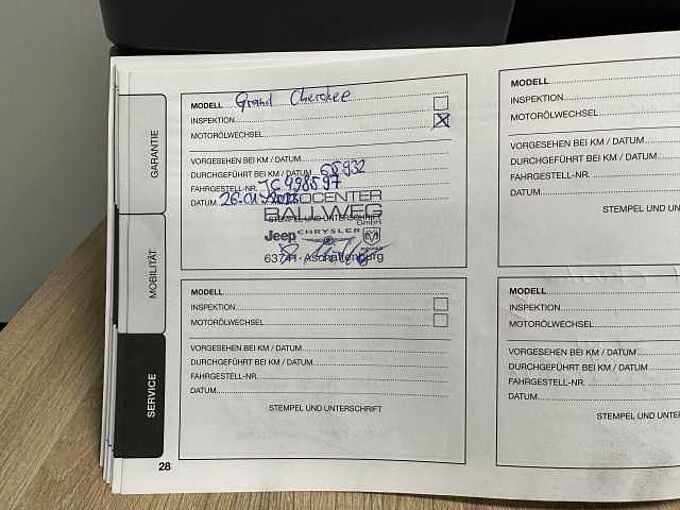 GARANTIE
MOBILITÄT
SERVICE
MODELL Grand Cherokee
INSPEKTION
MOTORÖLWECHSEL
VORGESEHEN BEI KM / DATUM
DURCHGEFÜHRT BEI KM / DATUM 65932
FAHRGESTELL-NR. JC498597
DATUM 26.01.
AUTOCENTER
BALLWEG
GmbH
STEMPEL UND UNTERSCHRIFT
Jeep CHRYSLER
63741 Aschaffenburg
MODELL
INSPEKTION
MOTORÖLWECHSEL
VORGESEHEN BEI KM / DATUM
DURCHGEFÜHRT BEI KM / DATUM
FAHRGESTELL-NR.
DATUM
STEMPEL UND UNTERSCHRIFT
28
MODELL
INSPEKTION
MOTORÖLWECHSEL
VORGESEHEN BEI KM / DATUM
DURCHGEFÜHRT BEI KM / DATUM
FAHRGESTELL-NR.
DATUM
STEMPEL UND UN
MODELL
INSPEKTION
MOTORÖLWECHSEL
VORGESEHEN BEI KM / DATUM
DURCHGEFÜHRT BEI KM / DATUM
FAHRGESTELL-NR.
DATUM
STEMPEL UND UNTER